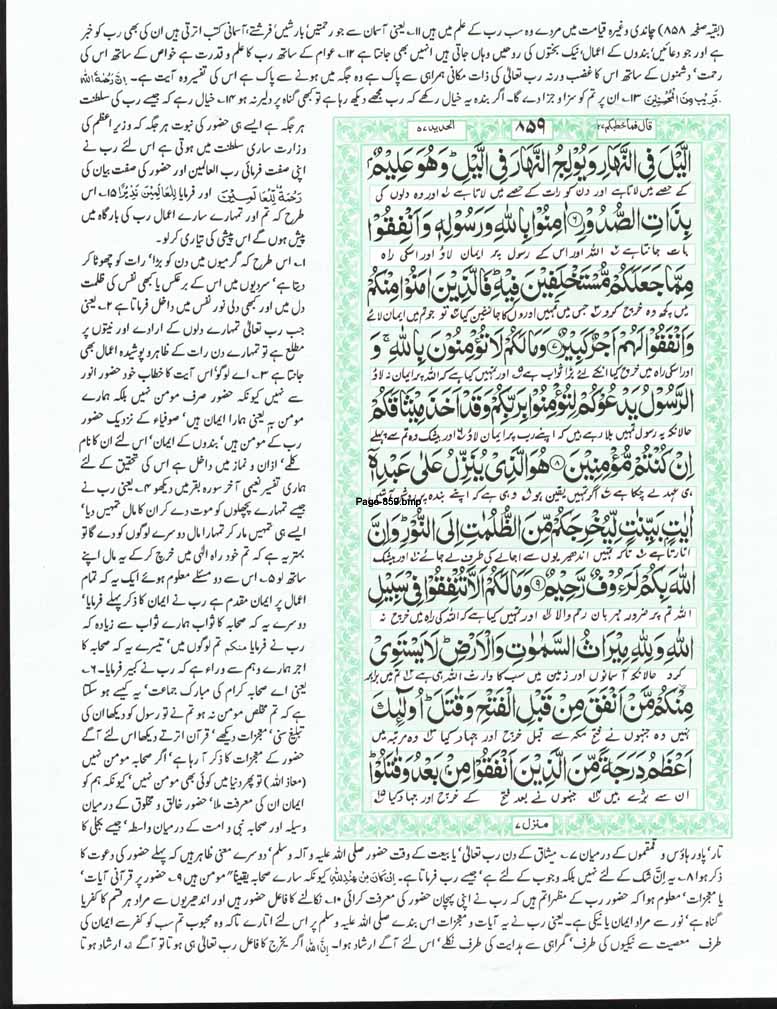 (بقیہ صفحہ ۸۵۸) چاندی وغیرہ قیامت میں مردے وہ سب رب کے علم میں ہیں ۱۱؎ یعنی آسمان سے جو رحمتیں بارشیں' فرشتے، آسمانی کتب اترتی ہیں ان کی بھی رب کو خبر
ہے اور جو دعائیں' بندوں کے اعمال' نیک بختوں کی روحیں وہاں جاتی ہیں انہیں بھی جانتا ہے ۱۲؎ عوام کے ساتھ رب کا علم و قدرت ہے خواص کے ساتھ اس کی
رحمت' دشمنوں کے ساتھ اس کا غضب ورنہ رب تعالیٰ کی ذات مکانی ہمراہی سے پاک ہے وہ جگہ میں ہونے سے پاک ہے اس کی تفسیر وہ آیت ہے۔ اِنَّ رَحْمَةَ اللّٰهِ
قَرِيْبٌ مِّنَ الْمُحْسِنِيْنَ ۱۳؎ ان پر تم کو سزا و جزا دے گا۔ اگر بندہ یہ خیال رکھے کہ رب مجھے دیکھ رہا ہے تو کبھی گناہ پر دلیر نہ ہو ۱۴؎ خیال رہے کہ جیسے رب کی سلطنت
ہر جگہ ہے ایسے ہی حضور کی نبوت ہر جگہ کہ وزیر اعظم کی
وزارت ساری سلطنت میں ہوتی ہے اس لئے رب نے
اپنی صفت فرمائی رب العالمین اور حضور کی صفت بیان کی
رَحْمَةً لِّلْعٰلَمِيْنَ اور فرمایا لِلْعٰلَمِيْنَ نَذِيْرًا ۱۵؎ اس
طرح کہ تم اور تمہارے سارے اعمال رب کی بارگاہ میں
پیش ہوں گے اس پیشی کی تیاری کر لو۔
۱؎ اس طرح کہ گرمیوں میں دن کو بڑا' رات کو چھوٹا کر
دیتا ہے' سردیوں میں اس کے برعکس یا کبھی نفس کی ظلمت
دل میں اور کبھی دلی نور نفس میں داخل فرماتا ہے ۲؎ یعنی
جب رب تعالیٰ تمہارے دلوں کے ارادے اور نیتوں پر
مطلع ہے تو تمہارے دن رات کے ظاہر و پوشیدہ اعمال بھی
جانتا ہے ۳؎ اے لوگو' اس آیت کا خطاب خود حضور انور
سے نہیں کیونکہ حضور صرف مومن نہیں بلکہ ہمارے
مومن بہ یعنی ہمارا ایمان ہیں' صوفیاء کے نزدیک حضور
رب کے مومن ہیں' بندوں کے ایمان' اس لئے ان کا نام
کلمے' اذان و نماز میں داخل ہے اس کی تحقیق کے لئے
ہماری تفسیر نعیمی آخر سورہ بقر میں دیکھو ۴؎ یعنی رب نے
جیسے تمہارے پچھلوں کو موت دے کر ان کا مال تمہیں دیا'
ایسے ہی تمہیں مار کر تمہارا مال دوسرے لوگوں کو دے گا تو
بہتر یہ ہے کہ تم خود راہ الٰہی میں خرچ کر کے یہ مال اپنے
ساتھ لو ۵؎ اس سے دو مسئلے معلوم ہوئے ایک یہ کہ تمام
اعمال پر ایمان مقدم ہے رب نے ایمان کا ذکر پہلے فرمایا'
دوسرے یہ کہ صحابہ کا ثواب ہمارے ثواب سے زیادہ کہ
رب نے فرمایا منکم تم لوگوں میں' تیسرے یہ کہ صحابہ کا
اجر ہمارے وہم سے وراء ہے کہ رب نے کبیر فرمایا۔ ۶؎
یعنی اے صحابہ کرام کی مبارک جماعت' یہ کیسے ہو سکتا
ہے کہ تم مخلص مومن نہ ہو تم نے تو رسول کو دیکھا ان کی
تبلیغ سنی' معجزات دیکھے' قرآن اترتے دیکھا اس لئے آگے
حضور کے معجزات کا ذکر آ رہا ہے' اگر صحابہ مومن نہیں
(معاذ اللہ) تو پھر دنیا میں کوئی بھی مومن نہیں' کیونکہ ہم کو
ایمان ان کی معرفت ملا' حضور خالق و مخلوق کے درمیان
وسیلہ اور صحابہ نبی و امت کے درمیان واسطہ' جیسے بجلی کا
قال فما خطبکم ۲۷
۸۵۹
الحدید ۵۷
الَّيْلَ فِي النَّهَارِ وَيُوْلِجُ النَّهَارَ فِي الَّيْلِ ؕ وَهُوَ عَلِيْمٌۢ
کے حصے میں لاتا ہے اور دن کو رات کے حصے میں لاتا ہے ۱؎ اور وہ دلوں کی
بِذَاتِ الصُّدُوْرِ ﴿۶﴾ اٰمِنُوْا بِاللّٰهِ وَرَسُوْلِهٖ وَاَنْفِقُوْا
بات جانتا ہے ۲؎ اللہ اور اس کے رسول پر ایمان لاؤ اور اسکی راہ
مِمَّا جَعَلَكُمْ مُّسْتَخْلَفِيْنَ فِيْهِ ؕ فَالَّذِيْنَ اٰمَنُوْا مِنْكُمْ
میں کچھ وہ خرچ کرو ۳؎ جس میں تمہیں اوروں کا جانشین کیا ۴؎ تو جو تم میں ایمان لائے
وَاَنْفَقُوْا لَهُمْ اَجْرٌ كَبِيْرٌ ﴿۷﴾ وَمَا لَكُمْ لَا تُؤْمِنُوْنَ بِاللّٰهِ ۚ وَ
اور اسکی راہ میں خرچ کیا انکے لئے بڑا ثواب ہے ۵؎ اور تمہیں کیا ہے کہ اللہ پر ایمان نہ لاؤ
الرَّسُوْلُ يَدْعُوْكُمْ لِتُؤْمِنُوْا بِرَبِّكُمْ وَقَدْ اَخَذَ مِيْثَاقَكُمْ
حالانکہ یہ رسول تمہیں بلا رہے ہیں کہ اپنے رب پر ایمان لاؤ ۶؎ اور بیشک وہ تم سے پہلے
اِنْ كُنْتُمْ مُّؤْمِنِيْنَ ﴿۸﴾ هُوَ الَّذِيْ يُنَزِّلُ عَلٰى عَبْدِهٖۤ
ہی عہد لے چکا ہے ۷؎ اگر تمہیں یقین ہو ۸؎ وہی ہے کہ اپنے بندہ پر روشن آیتیں
Page-859.bmp
اٰيٰتٍۭ بَيِّنٰتٍ لِّيُخْرِجَكُمْ مِّنَ الظُّلُمٰتِ اِلَى النُّوْرِ ؕ وَاِنَّ
اتارتا ہے ۹؎ تاکہ تمہیں اندھیریوں سے اجالے کی طرف لے جائے ۱۰؎ اور بیشک
اللّٰهَ بِكُمْ لَرَءُوْفٌ رَّحِيْمٌ ﴿۹﴾ وَمَا لَكُمْ اَلَّا تُنْفِقُوْا فِيْ سَبِيْلِ
اللہ تم پر ضرور مہربان رحم والا ۱۱؎ اور تمہیں کیا ہے کہ اللہ کی راہ میں خرچ نہ
اللّٰهِ وَلِلّٰهِ مِيْرَاثُ السَّمٰوٰتِ وَالْاَرْضِ ؕ لَا يَسْتَوِيْ
کرو حالانکہ آسمانوں اور زمین میں سب کا وارث اللہ ہی ہے ۱۲؎ تم میں برابر
مِنْكُمْ مَّنْ اَنْفَقَ مِنْ قَبْلِ الْفَتْحِ وَقٰتَلَ ؕ اُولٰٓئِكَ
نہیں وہ جنہوں نے فتح مکہ سے قبل خرچ اور جہاد کیا ۱۳؎ وہ مرتبہ میں
اَعْظَمُ دَرَجَةً مِّنَ الَّذِيْنَ اَنْفَقُوْا مِنْۢ بَعْدُ وَقٰتَلُوْا ؕ
ان سے بڑے ہیں ۱۴؎ جنہوں نے بعد فتح کے خرچ اور جہاد کیا ۱۵؎
منزل ۷
تار' پاور ہاؤس و قمقموں کے درمیان ۷؎ میثاق کے دن رب تعالیٰ' یا بیعت کے وقت حضور صلی اللہ علیہ و آلہ وسلم' دوسرے معنی ظاہر ہیں کہ پہلے حضور کی دعوت کا
ذکر ہوا ۸؎ یہ اِنْ شک کے لئے نہیں بلکہ وجوب کے لئے ہے' جیسے رب فرماتا ہے۔ کیونکہ سارے صحابہ یقیناً مومن ہیں ۹؎ حضور پر قرآنی آیات'
یا معجزات' معلوم ہوا کہ حضور رب کے مظہر اتم ہیں کہ رب نے اپنی پہچان حضور کی معرفت کرائی ۱۰؎ نکالنے کا فاعل حضور ہیں اور اندھیریوں سے مراد ہر قسم کا کفر یا
گناہ ہے' نور سے مراد ایمان یا نیکی ہے۔ یعنی رب نے یہ آیات و معجزات اس بندے صلی اللہ علیہ وسلم پر اس لئے اتارے تاکہ وہ محبوب تم سب کو کفر سے ایمان کی
طرف معصیت سے نیکیوں کی طرف' گمراہی سے ہدایت کی طرف نکالے' اس لئے آگے ارشاد ہوا۔ اِنَّ اللّٰهَ اگر یخرج کا فاعل رب تعالیٰ ہی ہو تا تو آگے انہ ارشاد ہوتا